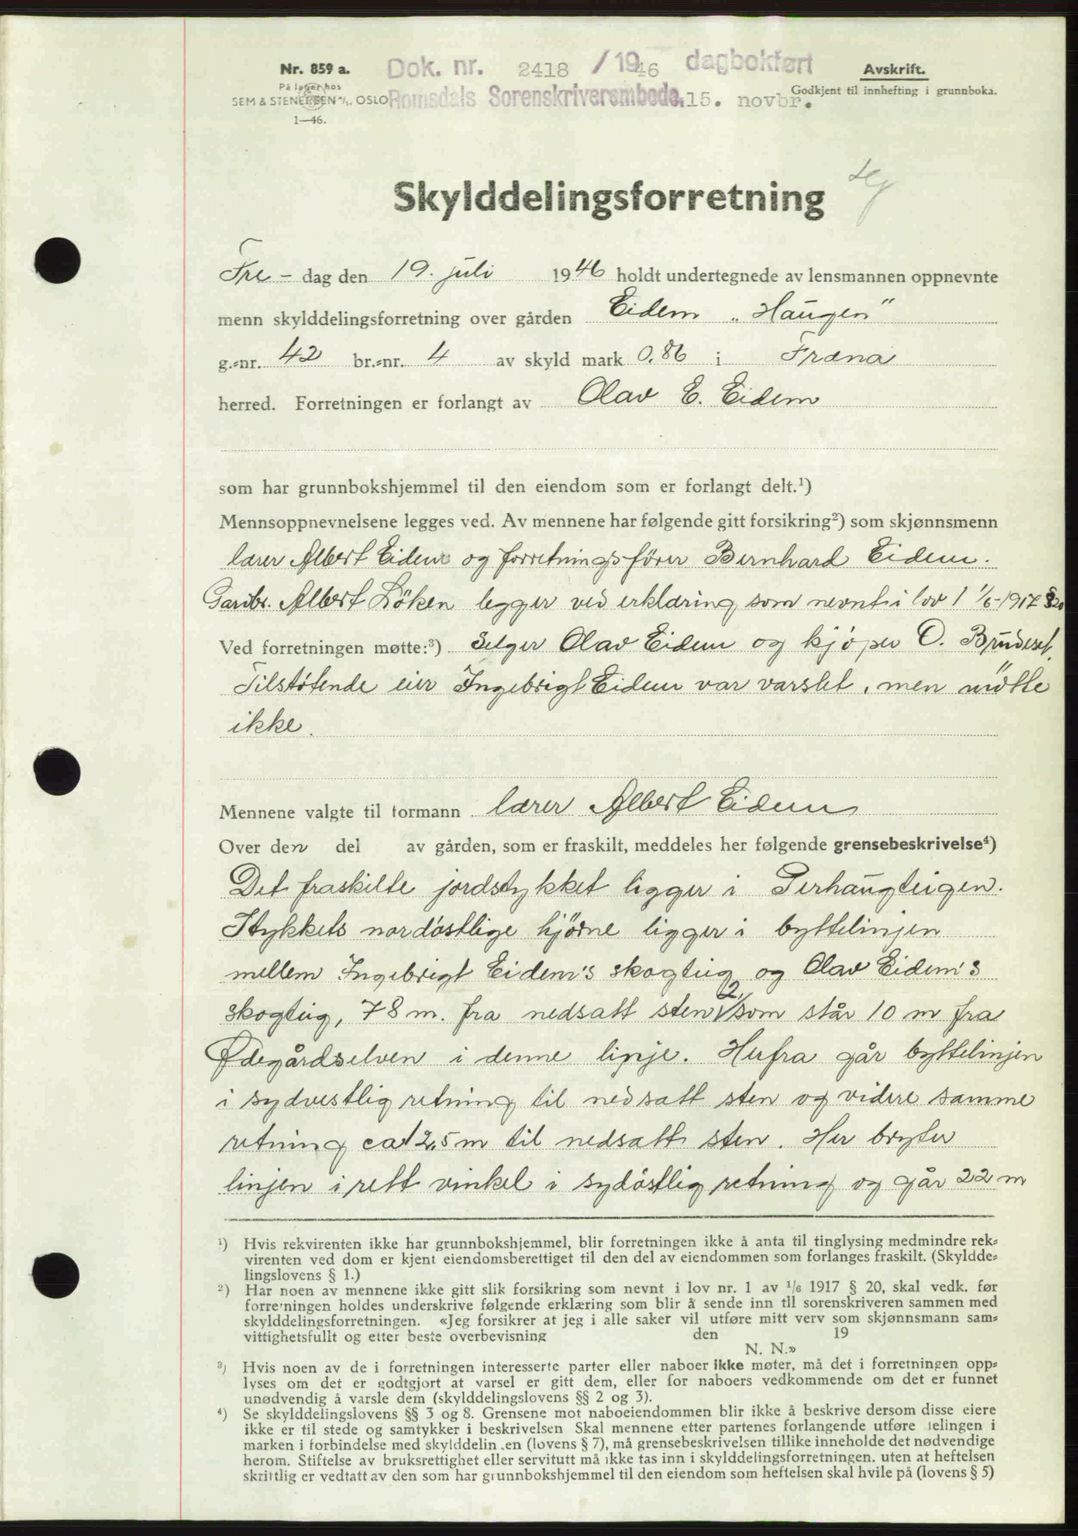 Nr. 859 a.
På lager hos
SEM & STENERSEN A/S, OSLO
1—46.
Dok. nr. 2418 / 1946 dagbokført
Romsdals Sorenskriverembede, 15. novbr.
Avskrift.
Godkjent til innhefting i grunnboka.
Skylddelingsforretning
Fre - dag den 19. juli 1946 holdt undertegnede av lensmannen oppnevnte
menn skylddelingsforretning over gården Eidem „Haugen”
g.-nr. 42 br.-nr. 4 av skyld mark 0.86 i Fræna
herred. Forretningen er forlangt av Olav E. Eidem
som har grunnbokshjemmel til den eiendom som er forlangt delt.¹)
Mennsoppnevnelsene legges ved. Av mennene har følgende gitt forsikring²) som skjønnsmenn
lærer Albert Eidem og forretningsfører Bernhard Eidem.
Gardbr. Albert Löken legger ved erklæring som nevnt i lov 1 1/6-1917 § 20
Ved forretningen møtte:³) Selger Olav Eidem og kjöper O. Brudeset,
Tilstøtende eier Ingebrigt Eidem var varslet, men mötte
ikke.
Mennene valgte til formann lærer Albert Eidem
Over den del av gården, som er fraskilt, meddeles her følgende grensebeskrivelse⁴)
Det fraskilte jordstykket ligger i Perhaugteigen.
Stykkets nordöstlige hjörne ligger i byttelinjen
mellem Ingebrigt Eidem's skogteig og Olav Eidem's
skogteig, 78 m. fra nedsatt sten 2, som står 10 m fra
Ødegårdselven i denne linje. Herfra går byttelinjen
i sydvestlig retning til nedsatt sten og videre samme
retning ca 12,5 m til nedsatt sten. Her bryter
linjen i rett vinkel i sydöstlig retning og går 22 m
¹) Hvis rekvirenten ikke har grunnbokshjemmel, blir forretningen ikke å anta til tinglysing medmindre rek-
virenten ved dom er kjent eiendomsberettiget til den del av eiendommen som forlanges fraskilt. (Skyldde-
lingslovens § 1.)
²) Har noen av mennene ikke gitt slik forsikring som nevnt i lov nr. 1 av 1/6 1917 § 20, skal vedk. før
forretningen holdes underskrive følgende erklæring som blir å sende inn til sorenskriveren sammen med
skylddelingsforretningen. «Jeg forsikrer at jeg i alle saker vil utføre mitt verv som skjønnsmann sam-
vittighetsfullt og etter beste overbevisning den 19
N. N.»
³) Hvis noen av de i forretningen interesserte parter eller naboer ikke møter, må det i forretningen opp-
lyses om det er godtgjort at varsel er gitt dem, eller for naboers vedkommende om det er funnet
unødvendig å varsle dem (skylddelingslovens §§ 2 og 3).
⁴) Se skylddelingslovens §§ 3 og 8. Grensene mot naboeiendommen blir ikke å beskrive dersom disse eiere
ikke er til stede og samtykker i beskrivelsen Skal mennene etter partenes forlangende utføre delingen i
marken i forbindelse med skylddelingen (lovens § 7), må grensebeskrivelsen tillike inneholde det nødvendige
herom. Stiftelse av bruksrettighet eller servitutt må ikke tas inn i skylddelingsforretningen. uten at heftelsen
skriftlig er vedtatt av den som har grunnbokshjemmel til den eiendom som heftelsen skal hvile på (lovens § 5)